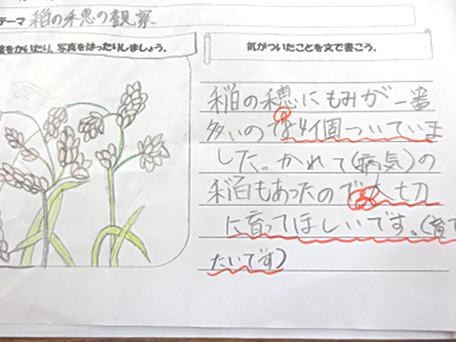 テーマ 稲の禾恵の観察
絵をかいたり、写真をはったりしましょう。
気がついたことを文で書こう。
稲の穂にもみが一番
多いので 41個ついていま
した。かれて(病気)の
稲もあったので 大切
に育ってほしいです。(育て
たいです)